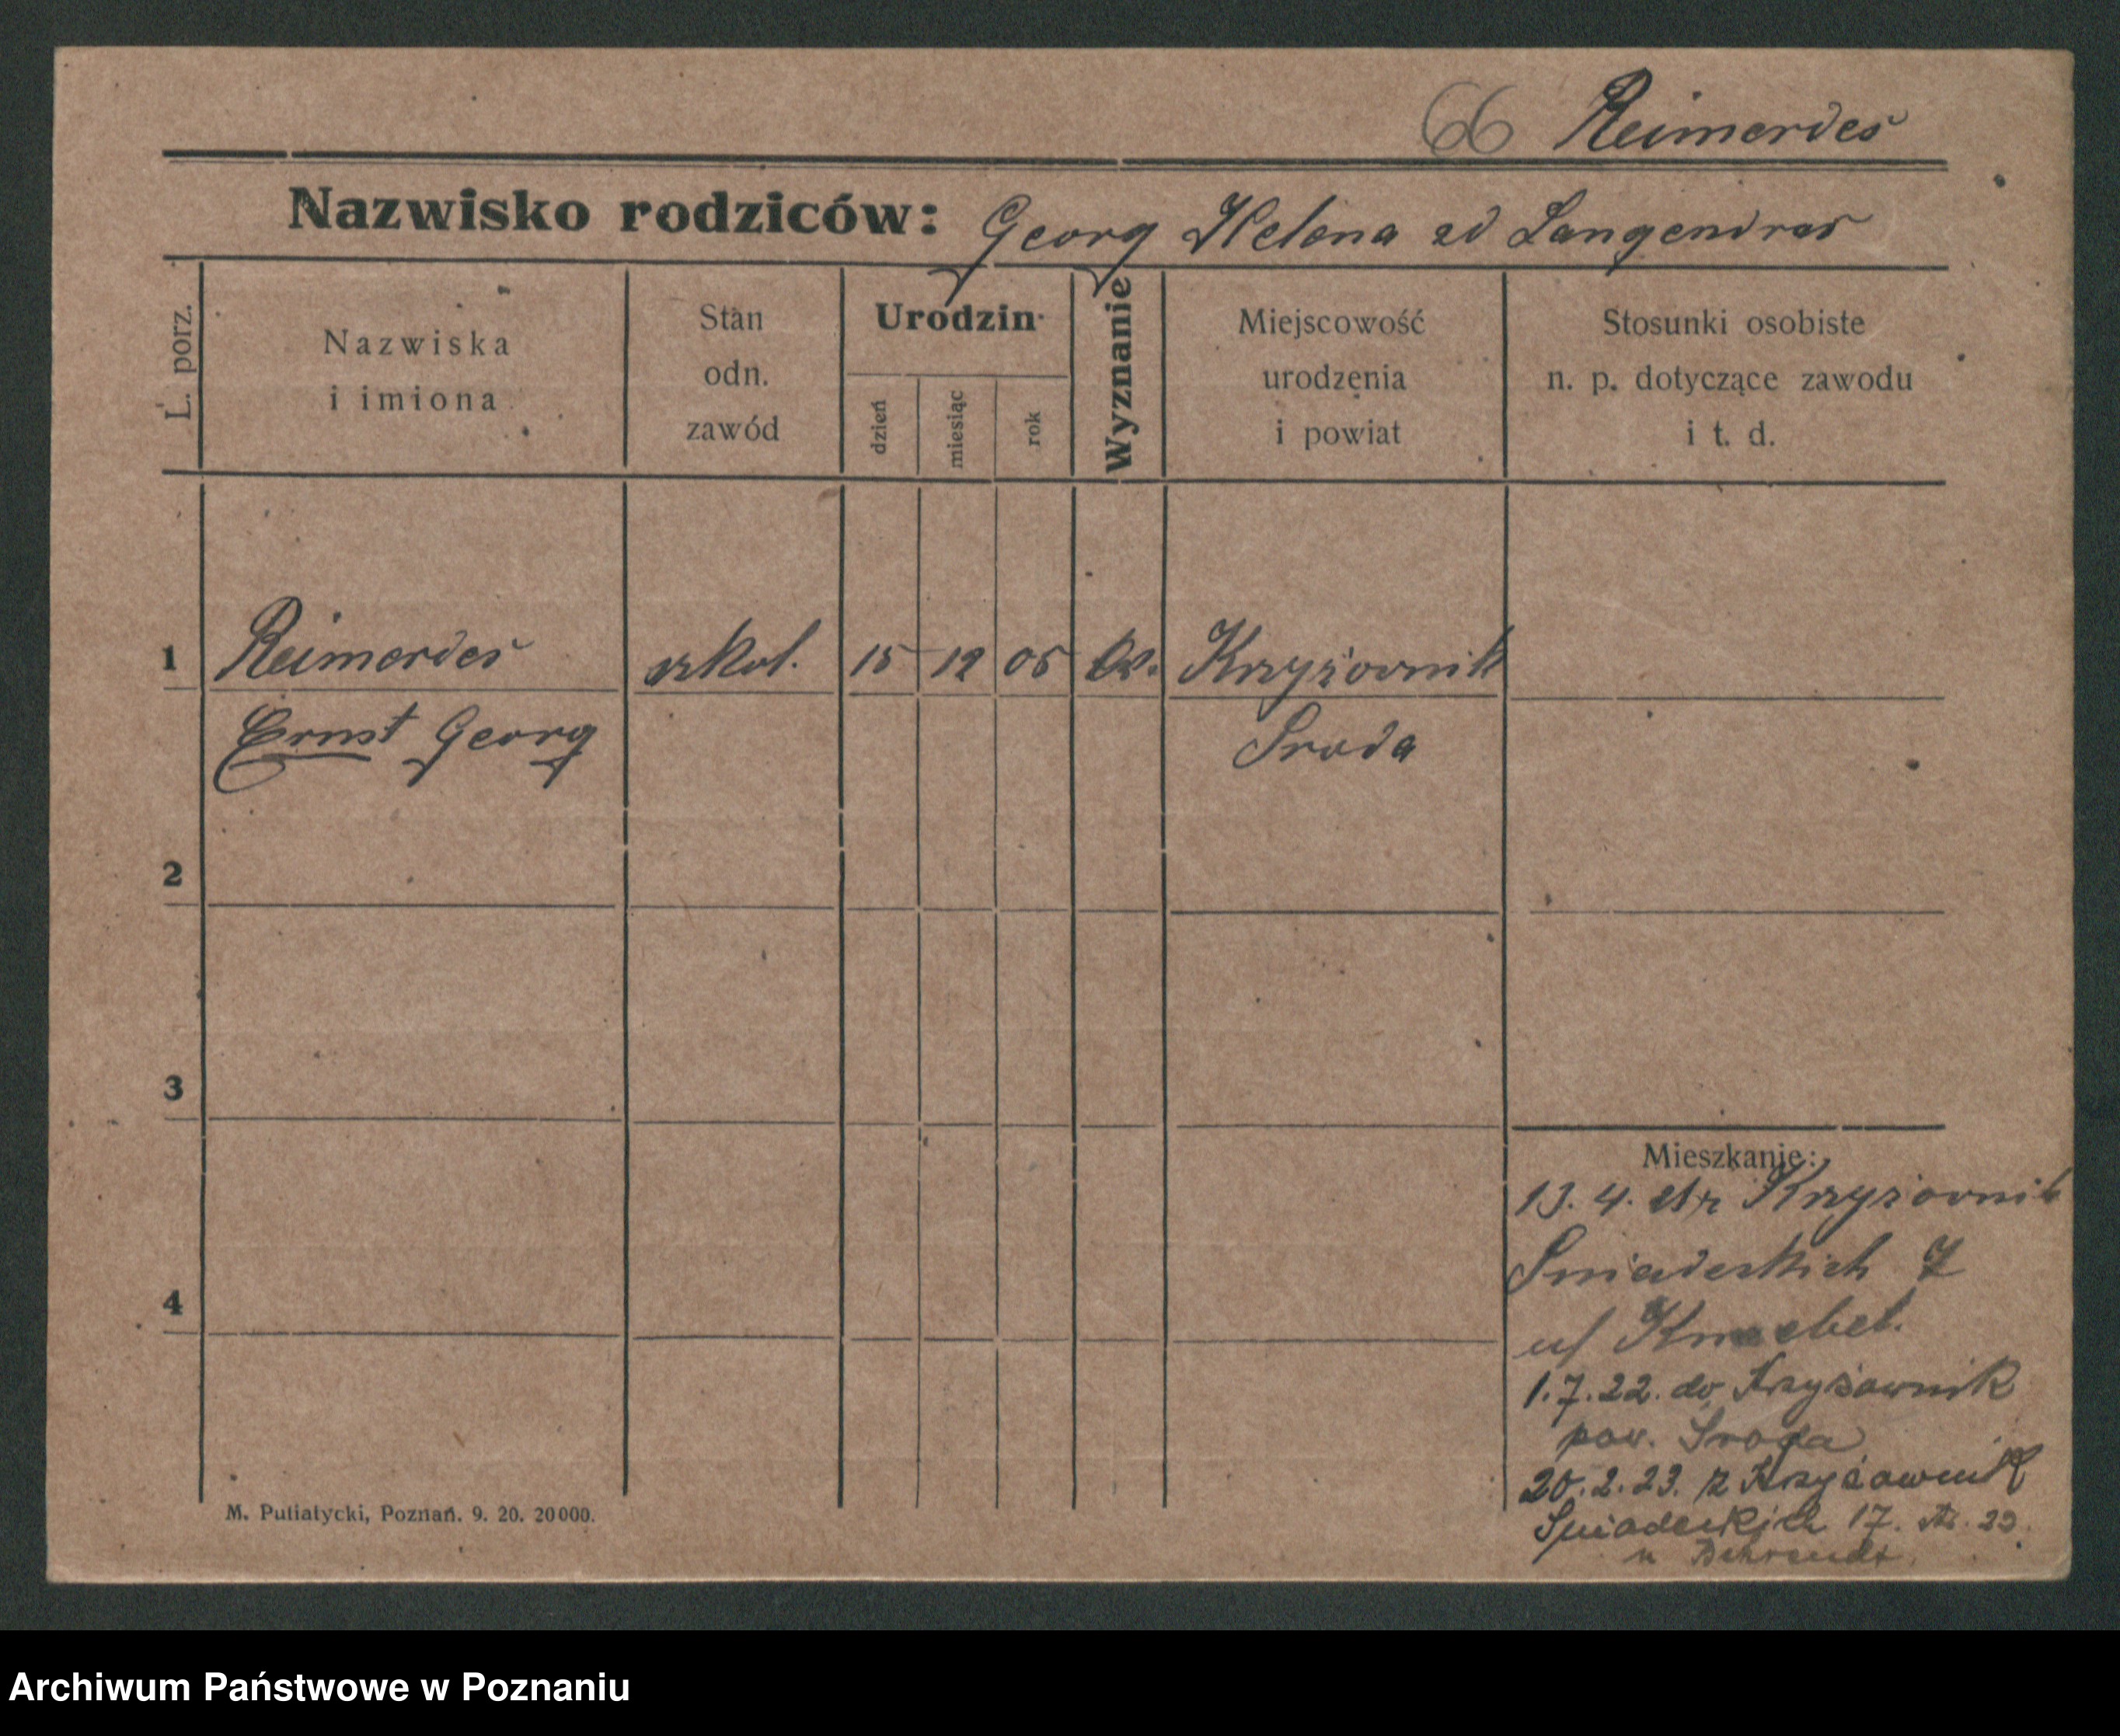 66 Reimerdes
Nazwisko rodziców: Georg Helena zd
L. porz.
Nazwiska
i imiona
Stan
odn.
zawód
Urodzin
dzień
miesiąc
rok
Wyznanie
Miejscowość
urodzenia
i powiat
Stosunki osobiste
n. p. dotyczące zawodu
i t. d.
1 Reimerdes szkol. 15 12 05 Ew. Krzyżownik
Ernst Georg Sroda
2
3
4
Mieszkanie:
13. 4. Krzyżownik
Sniadeckich 7
1.7.22. do Krzyżownik
pow. Sroda
20.2.23. z Krzyżownik
Sniadeckich 17.
u Behrendt
M. Putiatycki, Poznań. 9. 20. 20000.
Archiwum Państwowe w Poznaniu